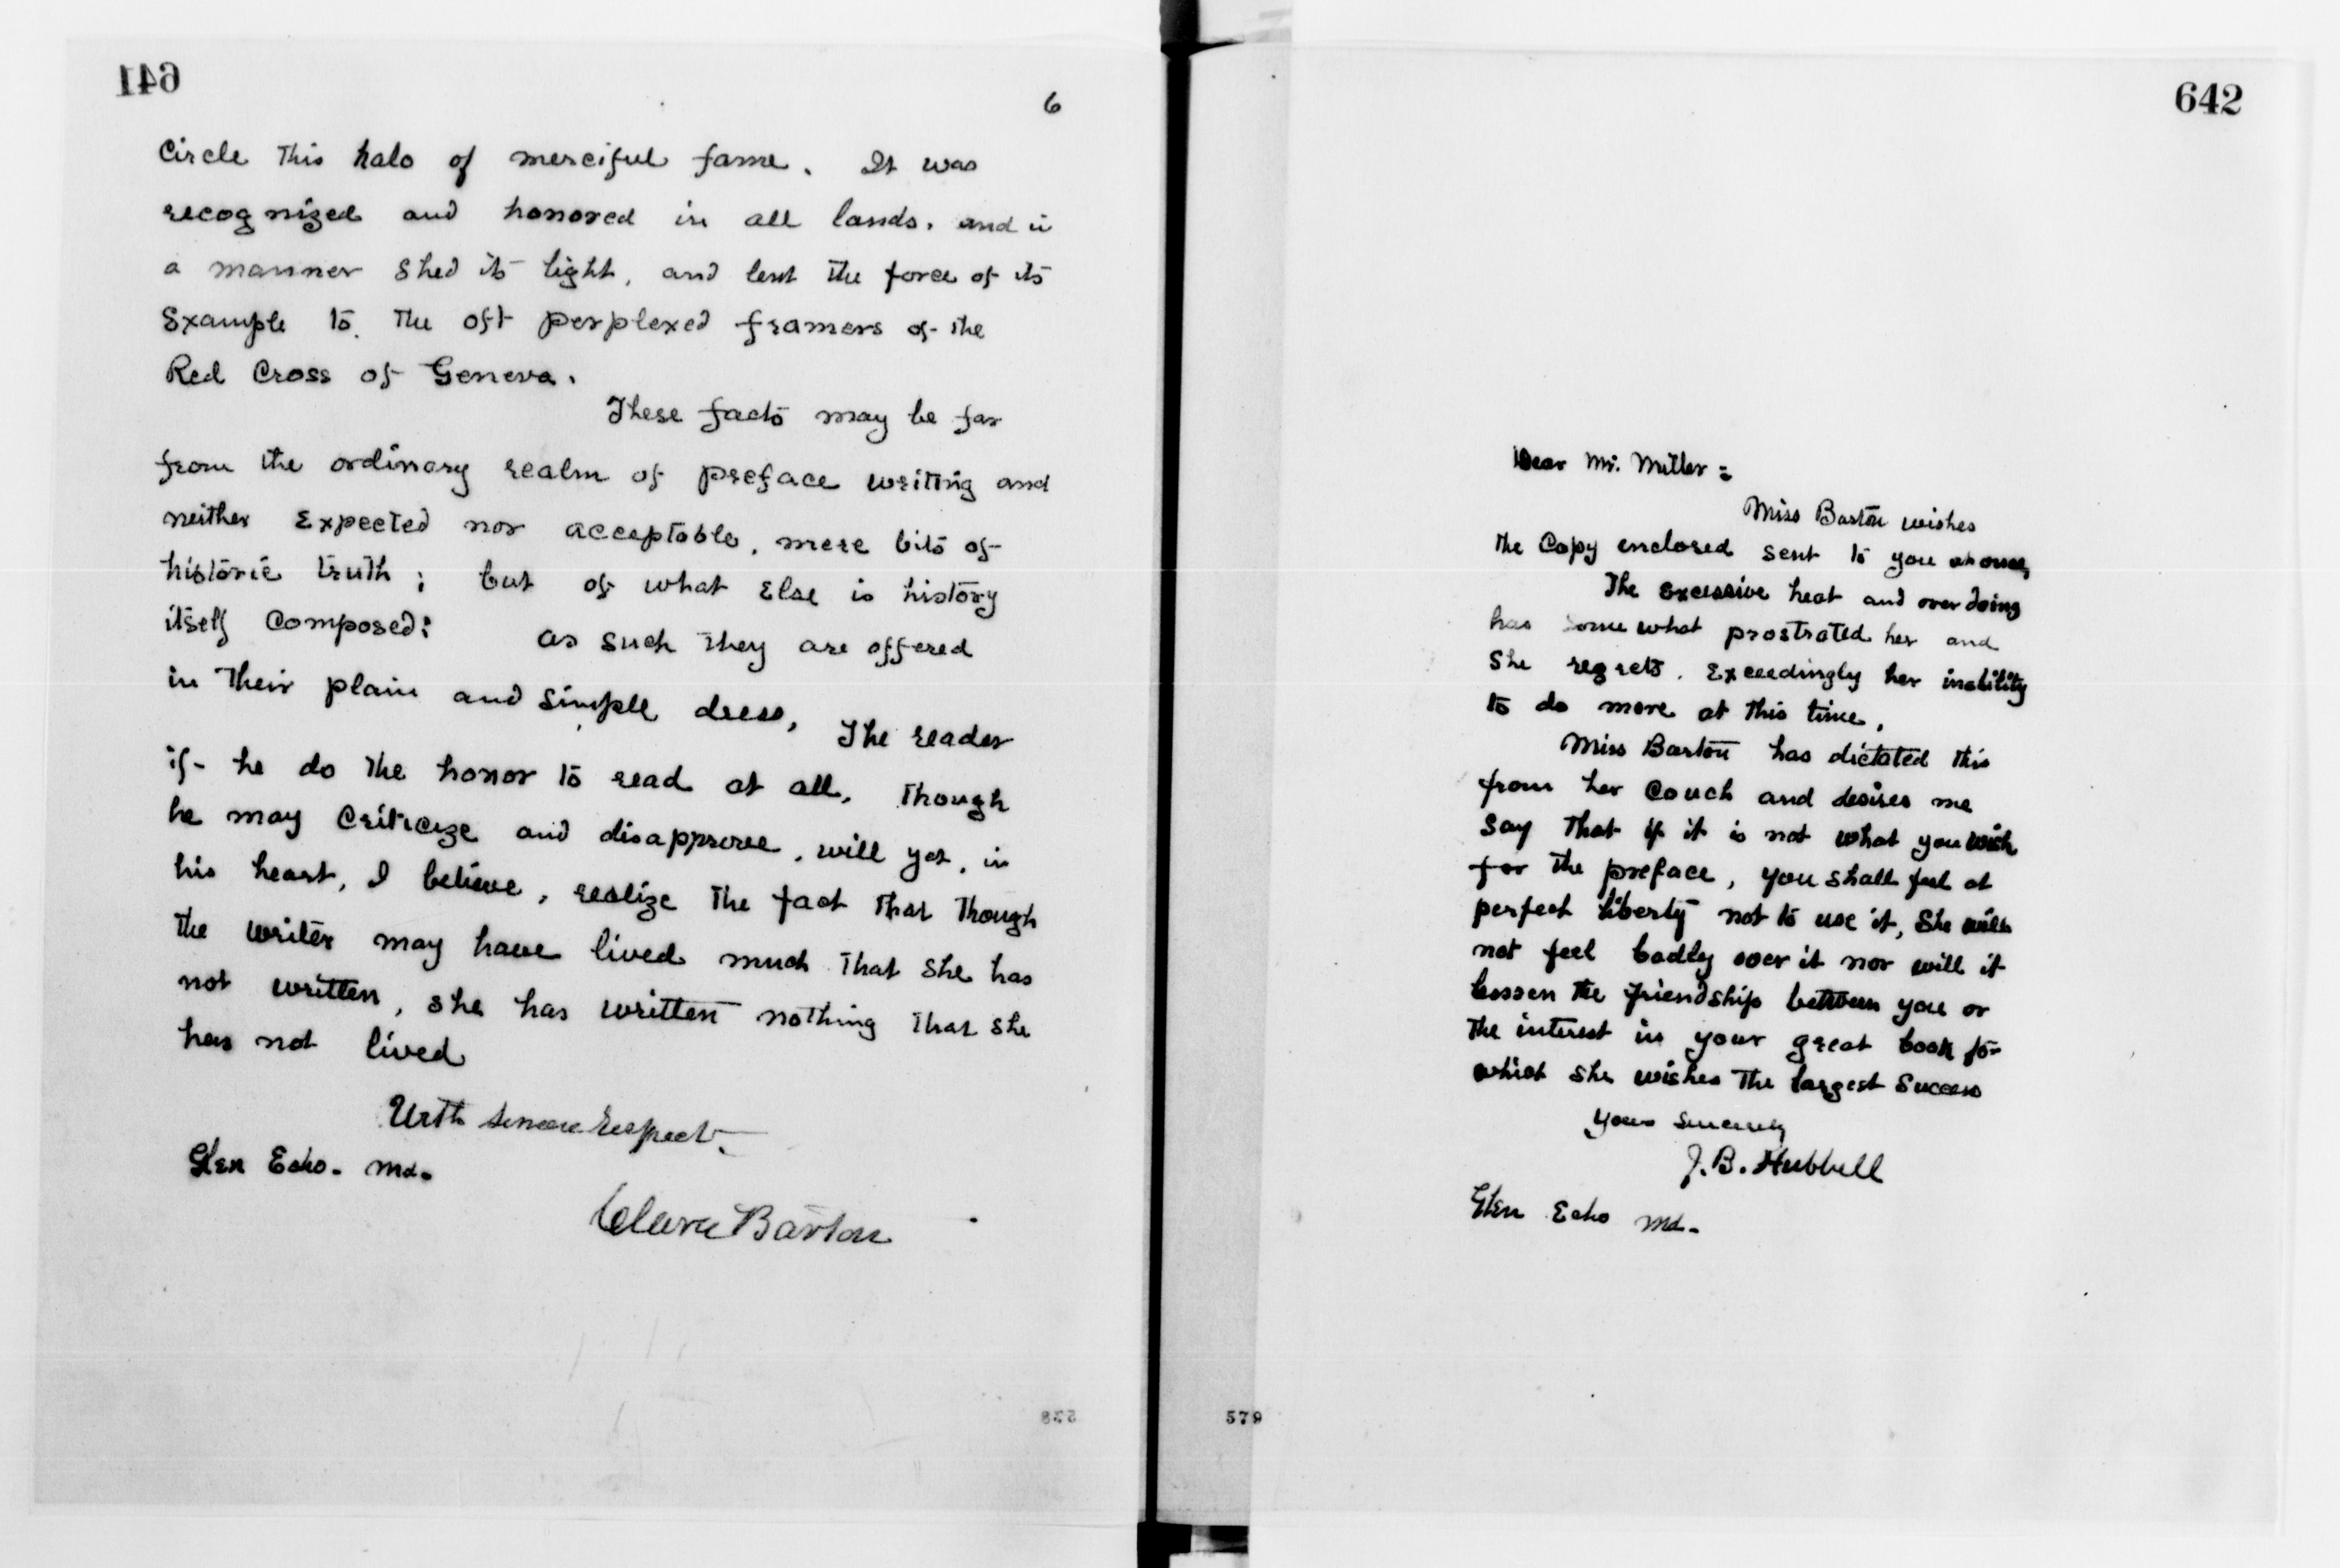 641
6
Circle this halo of merciful fame. It was
recognized and honored in all lands, and in
a manner shed its light, and lent the force of its
Example to the oft perplexed framers of the
Red Cross of Geneva.
These facts may be far
from the ordinary realm of preface writing and
neither Expected nor acceptable, mere bits of
historic truth; but of what Else is history
itself Composed? as such they are offered
in their plain and simple dress, The reader
if he do the honor to read at all, though
he may Criticize and disapprove, will yet, in
his heart, I believe, realize the fact that though
the writer may have lived much that she has
not written, she has written nothing that she
has not lived
With sincere respect.
Glen Echo. Md.
Clara Barton
538
642
Dear Mr. Miller:
Miss Barton wishes
the Copy enclosed sent to you at once,
The Excessive heat and over doing
has some what prostrated her and
She regrets Exceedingly her inability
to do more at this time.
Miss Barton has dictated this
from her Couch and desires me
say that if it is not what you wish
for the preface, you shall feel at
perfect liberty not to use it, She will
not feel badly over it nor will it
lessen the friendship between you or
the interest in your great book for
which she wishes the largest Success
Yours Sincerely
J. B. Hubbell
Glen Echo Md.
579